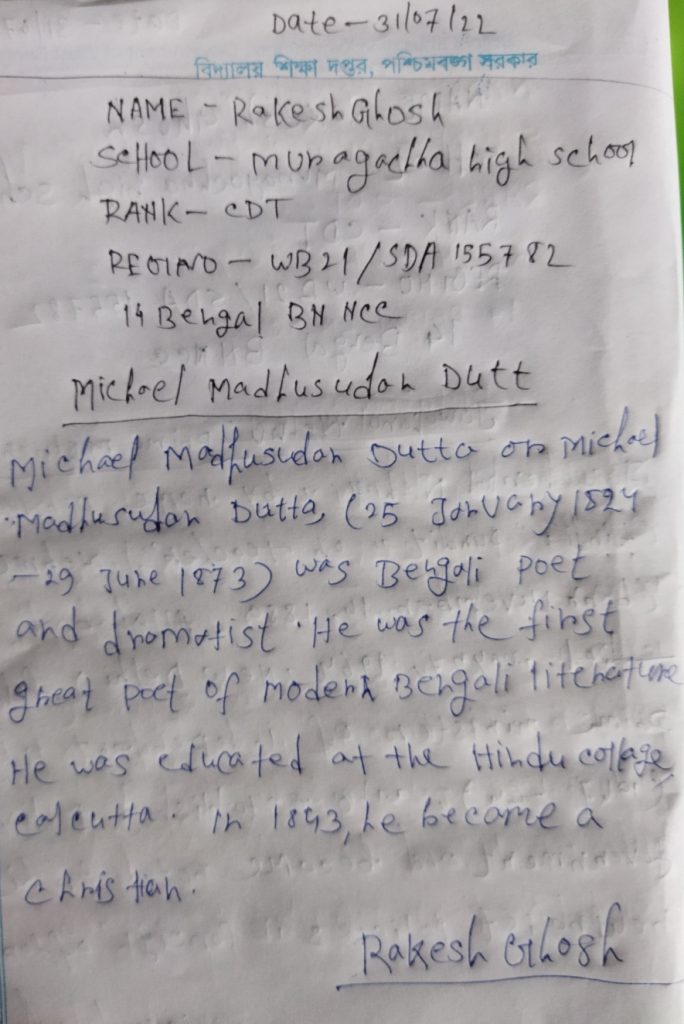 Date - 31/07/22
বিদ্যালয় শিক্ষা দপ্তর, পশ্চিমবঙ্গ সরকার
NAME - Rakesh Ghosh
SCHOOL - muragachha high school
RANK - CDT
REGINO - WB21/SDA 155782
14 Bengal BN NCC
Michael Madhusudan Dutt
Michael Madhusudan Dutta or Michael
Madhusudan Dutta, (25 January 1824
- 29 June 1873) was Bengali poet
and dramatist. He was the first
great poet of modern Bengali literature
He was educated at the Hindu collage,
calcutta. In 1843, he become a
Christian.
Rakesh Ghosh